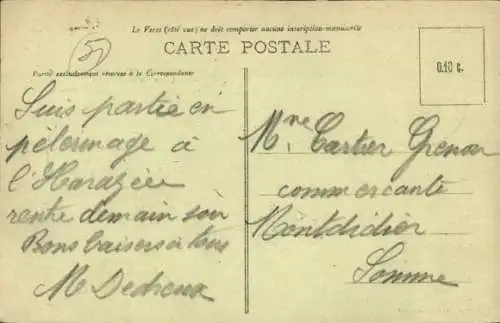 Le Verso (côté vue) ne doit comporter aucune inscription manuscrite
CARTE POSTALE
Partie exclusivement réservée à la Correspondance
0.10 c.
5
Suis partie en
pèlerinage à
l'Harazée
rentre demain soir
Bons baisers à tous
M Dedroux
Mme Cartier Grenon
commerçante
Montdidier
Somme